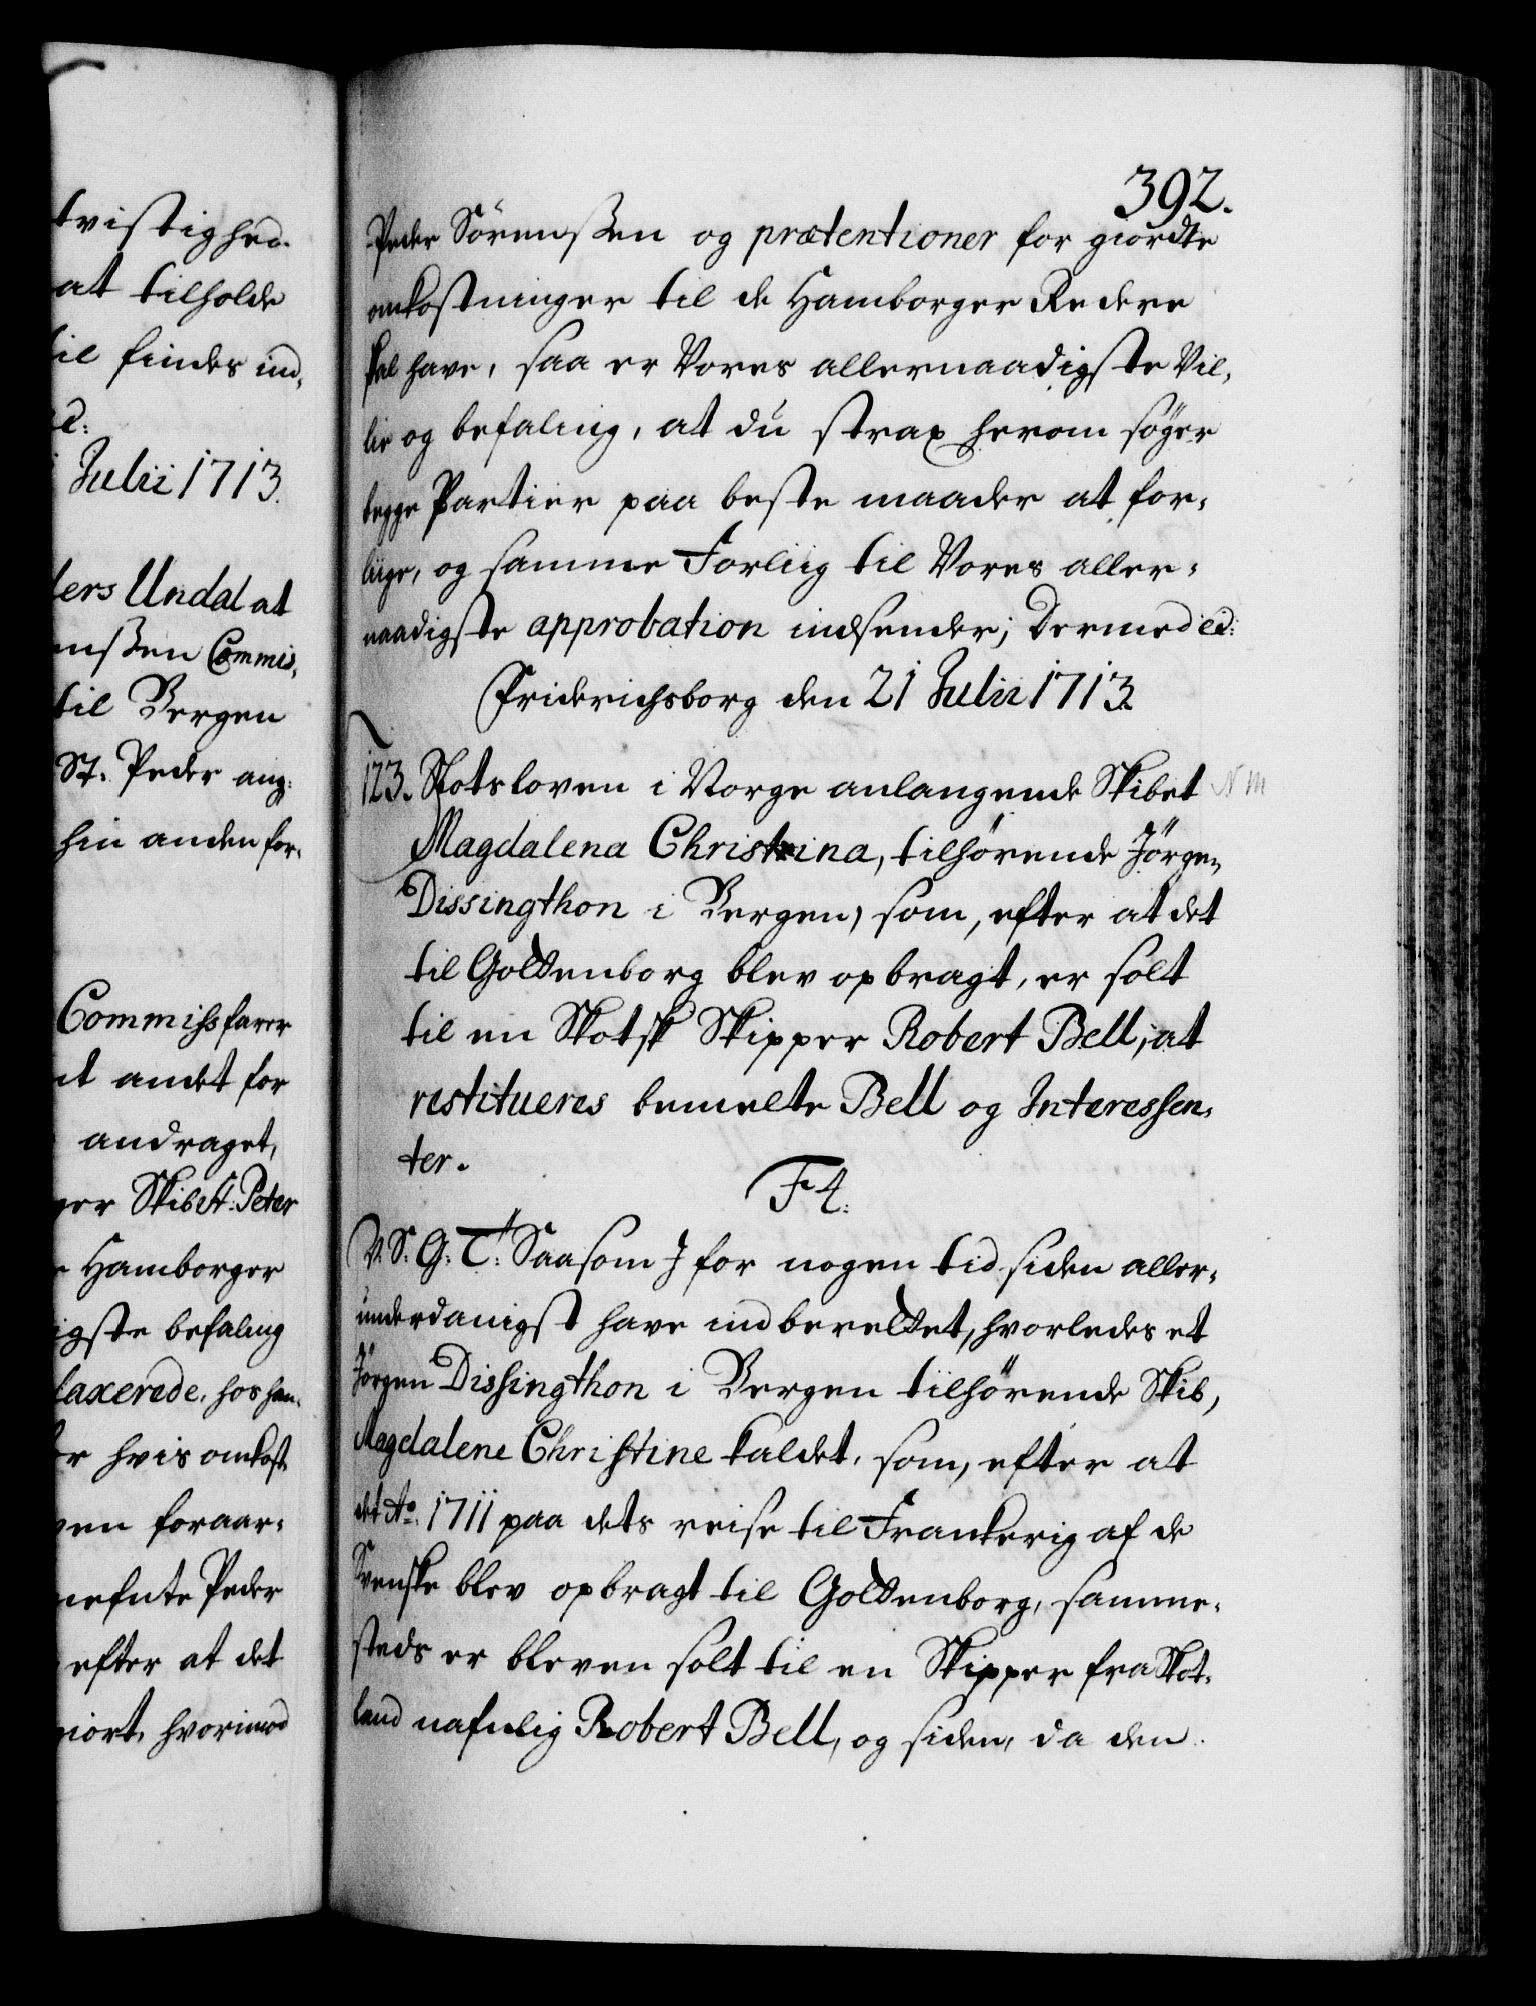 tvistighed
at tilholde
til findes ind,
ed:
Julii 1713.
ders Undal at
enssen Commis,
til Bergen
St. Peder ang:
hin anden for,
Commissfarer
andet for
andraget,
ger Skib St: Peter
Hamborger
igste befaling
taxerede, hos han,
hvis omkost
foraar,
nefnte Peder
efter at det
giort, hvorimod
392.
Peder Sörenssen og prætentioner for giordte
omkostninger til de Hamborger Redere
skal have, saa er Vores allernaadigste Vil,
lie og befaling, at du strax herom söger
begge Partier paa beste maader at for,
liige, og samme Forliig til Vores aller,
naadigste approbation indsender; Dermed ed:
Friderichsborg den 21 Julii 1713.
123. Slotsloven i Norge anlangende Skibet N m
Magdalena Christina, tilhörende Jörgen
Dissingthon i Bergen, som, efter at det
til Gottenborg blev opbragt, er solt
til en Skotsk Skipper Robert Bell, at
restitueres bemelte Bell og Interessen,
ter.
F 4.
V. S. G: T: Saasom I for nogen tid siden aller,
underdanigst have indberettet, hvorledes et
Jörgen Dissingthon i Bergen tilhörende Skib,
Magdalene Christine kaldet, som, efter at
det Ao. 1711 paa dets reise til Frankerig af de
Svenske blev opbragt til Gottenborg, samme,
steds er bleven solt til en Skipper fra Skot,
land nafnlig Robert Bell, og siden, da den